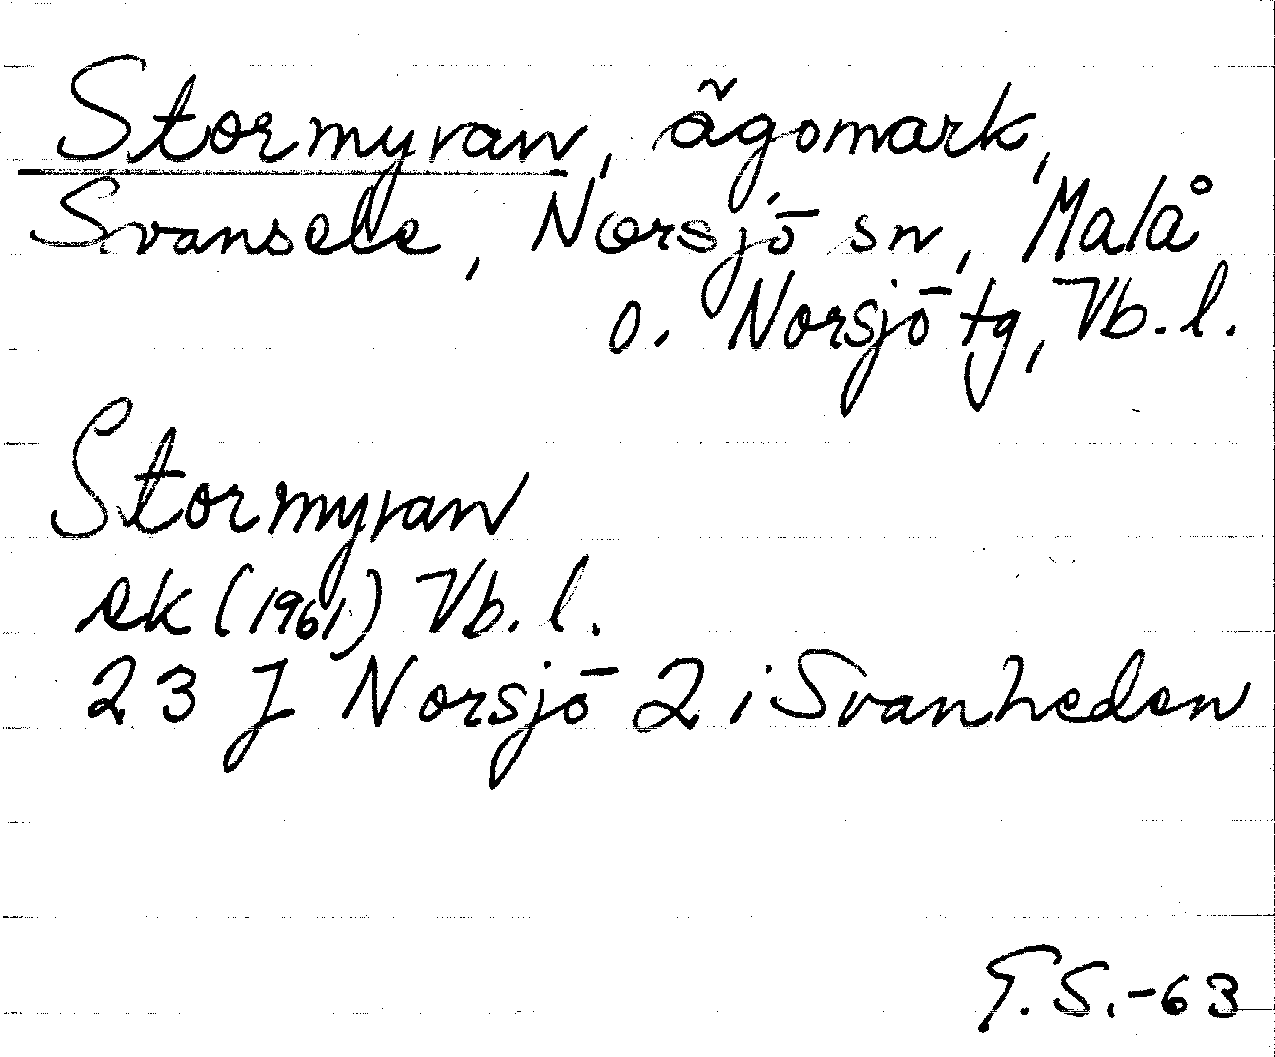 Stormyran, ägomark,
Svansele, Norsjö sn, Malå
o. Norsjö tg, Vb. l.
Stormyran
ek (1961) Vb. l.
23 J Norsjö 2 i Svanheden
G.S.-63